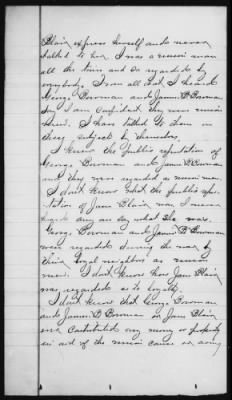 Blair express herself and never
talked to her. I was a union man
all the time and so regarded by
everybody. From all that I heard
George Bowman and James B Bowman
say I am confident they were union
men. I have talked to them on
this subject by themselves.
I know the public reputation of
George Bowman and James B Bowman
and they were regarded as union men.
I don't know what the public repu-
tation of Jane Blair was. I never
heard any one say what she was.
George Bowman and James B Bowman
were regarded during the war by
their loyal neighbors as union
men. I don't know how Jane Blair
was regarded as to loyalty.
I don't know that George Bowman
and James B Bowman or Jane Blair
ever contributed any money or property
in aid of the union cause or army